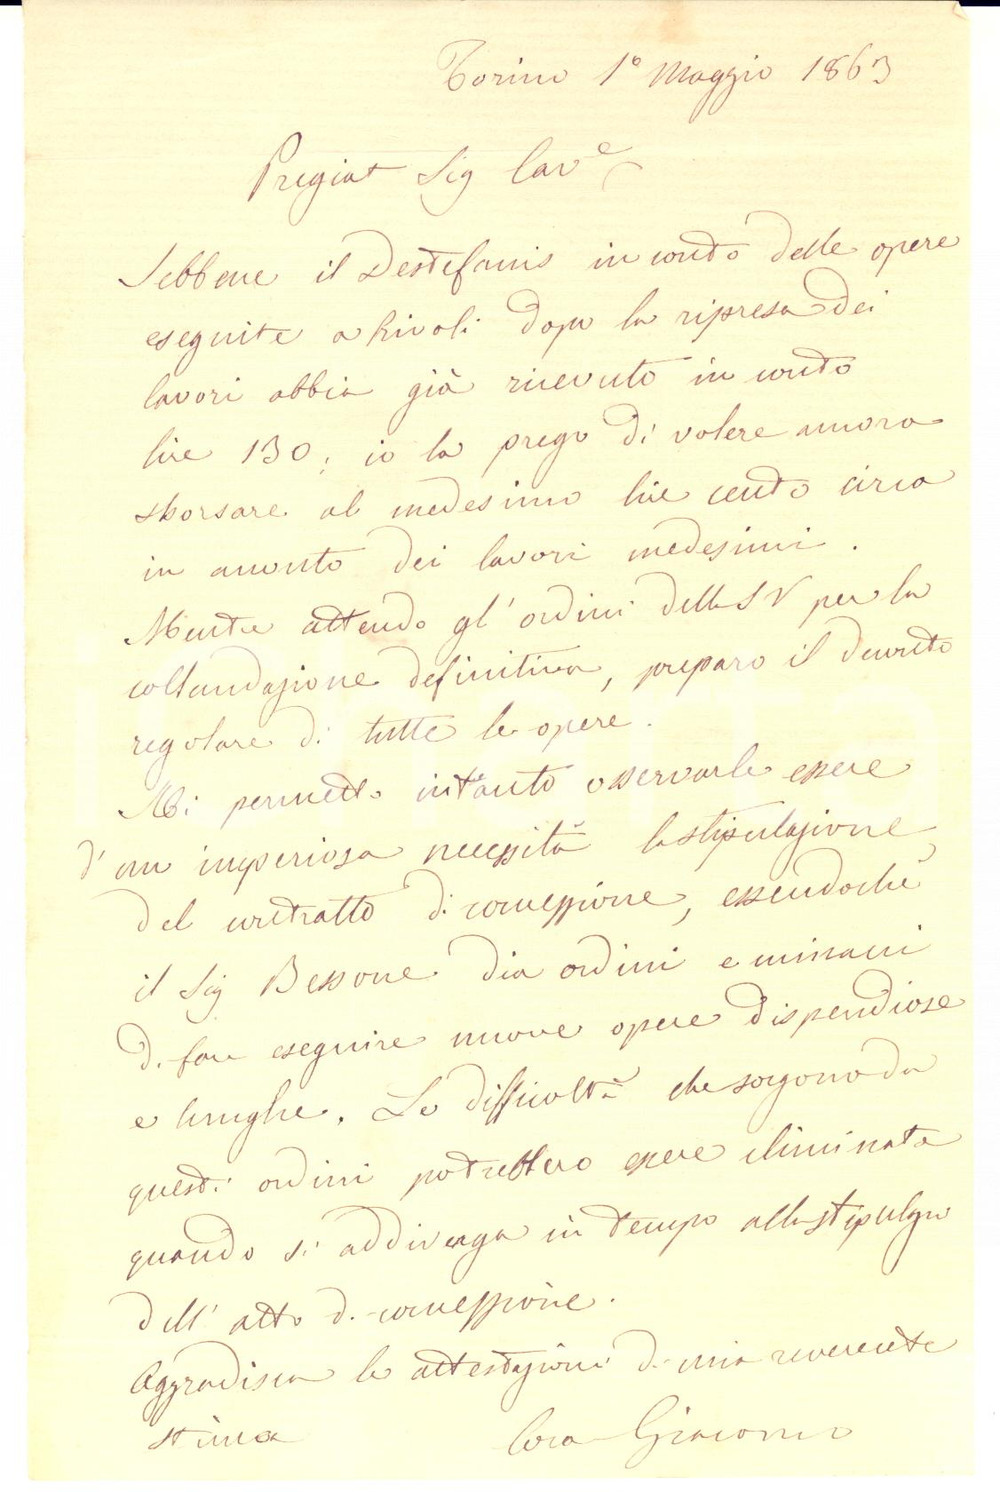 Torino 1° Maggio 1863
Pregiat Sig Cav.e
Sebbene il Destefanis in conto delle opere
eseguite a Rivoli dopo la ripresa dei
lavori abbia già ricevuto in conto
lire 130; io la prego di volere ancora
sborsare al medesimo lire cento circa
in acconto dei lavori medesimi.
Mentre attendo gl'ordini della SV per la
collaudazione definitiva, preparo il
regolare di tutte le opere.
Mi permetto intanto osservarle essere
d'un imperiosa necessità la stipulazione
del contratto di concessione, essendochè
il Sig Bessone dia ordini e minacci
di fare eseguire nuove opere dispendiose
e lunghe. Le difficoltà che sorgono da
questi ordini potrebbero essere eliminate
quando si addivenga in tempo alla stipulazne
dell'atto di concessione.
Aggradisca le attestazioni di mia reverente
stima Cora Giacomo